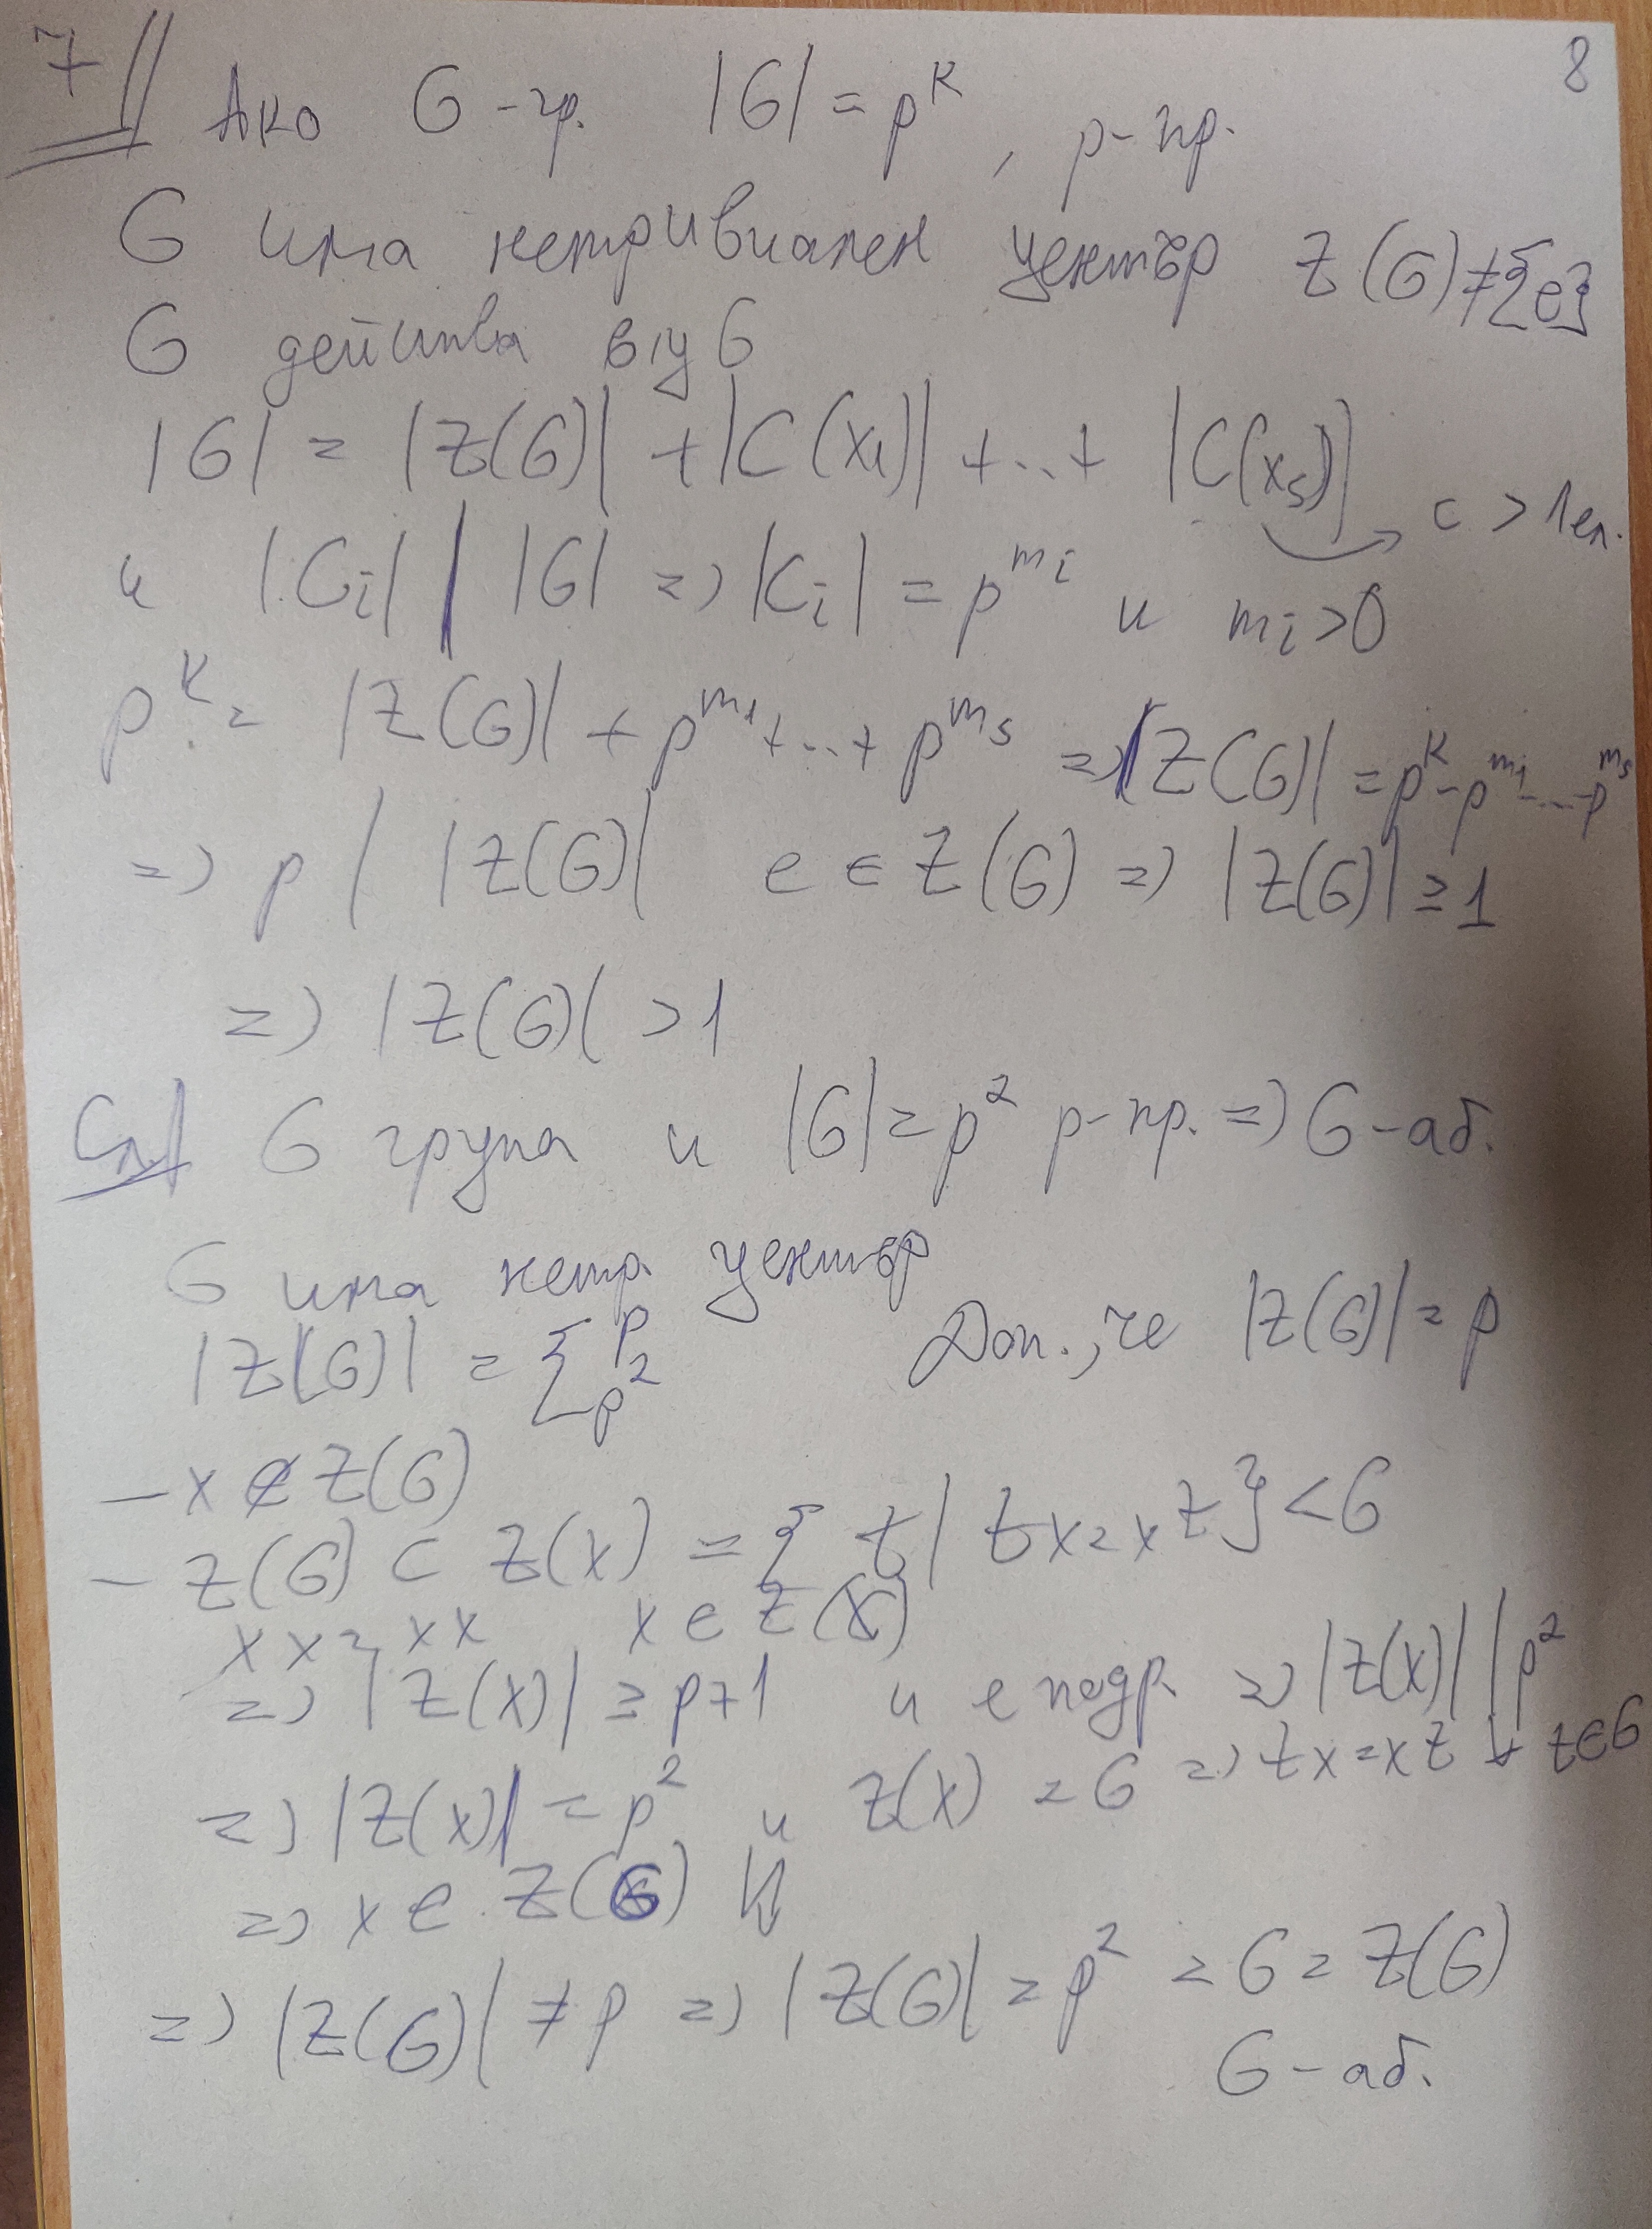 8
7|| Ако G-гр. |G| = p^k, p-пр.
G има нетривиален център Z(G)≠{e}
G действа в/у G
|G| = |Z(G)| + |C(x₁)| + ... + |C(xₛ)| → с > 1 ел.
и |Cᵢ| | |G| => |Cᵢ| = p^{mᵢ} и mᵢ>0
p^k = |Z(G)| + p^{m₁} + ... + p^{mₛ} => |Z(G)| = p^k - p^{m₁} - ... - p^{mₛ}
=> p | |Z(G)| e ∈ Z(G) => |Z(G)| ≥ 1
=> |Z(G)| > 1
Сл| G група и |G| = p² p-пр. => G-аб.
G има нетр. център
|Z(G)| = { p p² Доп., че |Z(G)| = p
- x ∉ Z(G)
- Z(G) ⊂ Z(x) = {z | zx = xz} < G
xx = xx x ∈ Z(x)
=> |Z(x)| ≥ p+1 и е подгр. => |Z(x)| | p²
=> |Z(x)| = p² и Z(x) = G => zx = xz ∀ z∈G
=> x ∈ Z(G) ↯
=> |Z(G)| ≠ p => |Z(G)| = p² = G = Z(G)
G-аб.